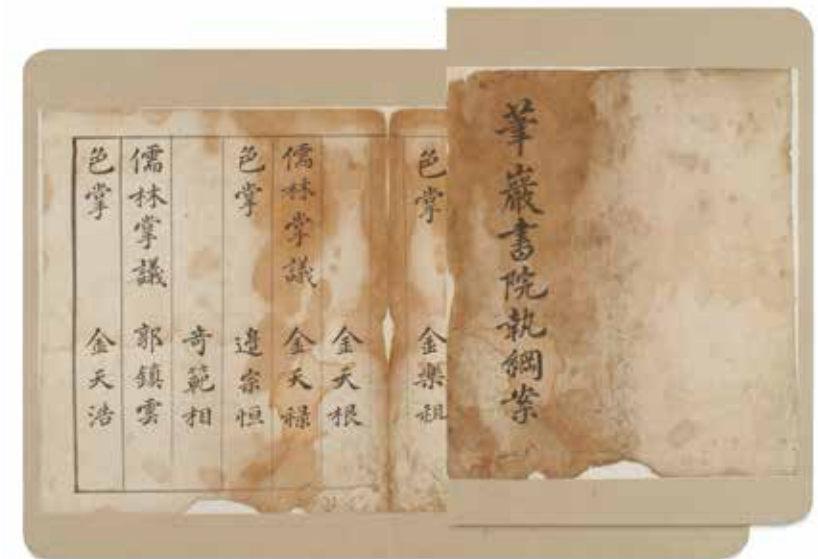 筆巖書院執綱案
色掌 金樂祖
金天根
儒林掌議 金天祿
色掌 邊宗恒
奇範相
儒林掌議 郭鎮雲
色掌 金天浩